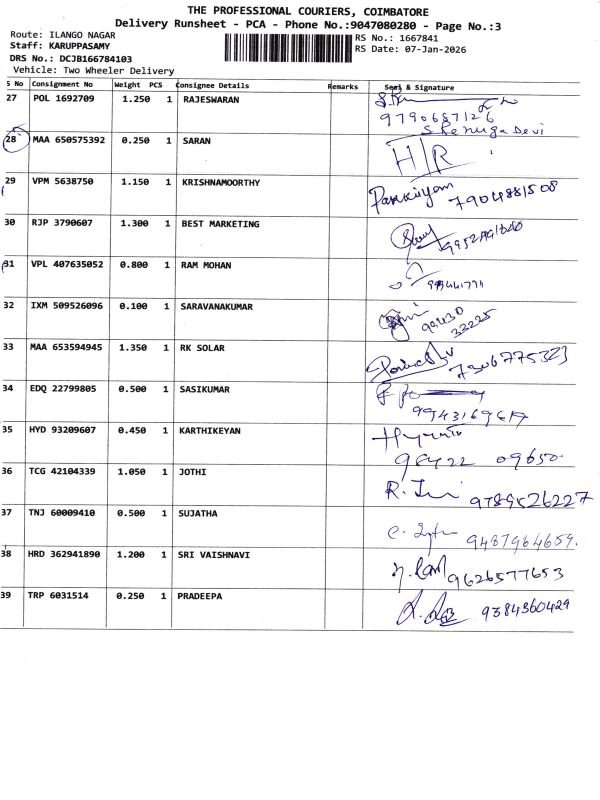 THE PROFESSIONAL COURIERS, COIMBATORE
Delivery Runsheet - PCA - Phone No.:9047080280 - Page No.:3
Route: ILANGO NAGAR
RS No.: 1667841
Staff: KARUPPASAMY
RS Date: 07-Jan-2026
DRS No.: DCJB166784103
Vehicle: Two Wheeler Delivery
S No Consignment No Weight PCS Consignee Details Remarks Seal & Signature
27 POL 1692709 1.250 1 RAJESWARAN
9790687126
Shenuga Devi
28 MAA 650575392 0.250 1 SARAN H/R
29 VPM 5638750 1.150 1 KRISHNAMOORTHY 7904881508
30 RJP 3790607 1.300 1 BEST MARKETING
31 VPL 407635052 0.800 1 RAM MOHAN
32 IXM 509526096 0.100 1 SARAVANAKUMAR 99430
32225
33 MAA 653594945 1.350 1 RK SOLAR 7306775323
34 EDQ 22799805 0.500 1 SASIKUMAR
35 HYD 93209607 0.450 1 KARTHIKEYAN
98422 09650
36 TCG 42104339 1.050 1 JOTHI 9789526227
37 TNJ 60009410 0.500 1 SUJATHA 9487964659.
38 HRD 362941890 1.200 1 SRI VAISHNAVI 9626577653
39 TRP 6031514 0.250 1 PRADEEPA 9384360429